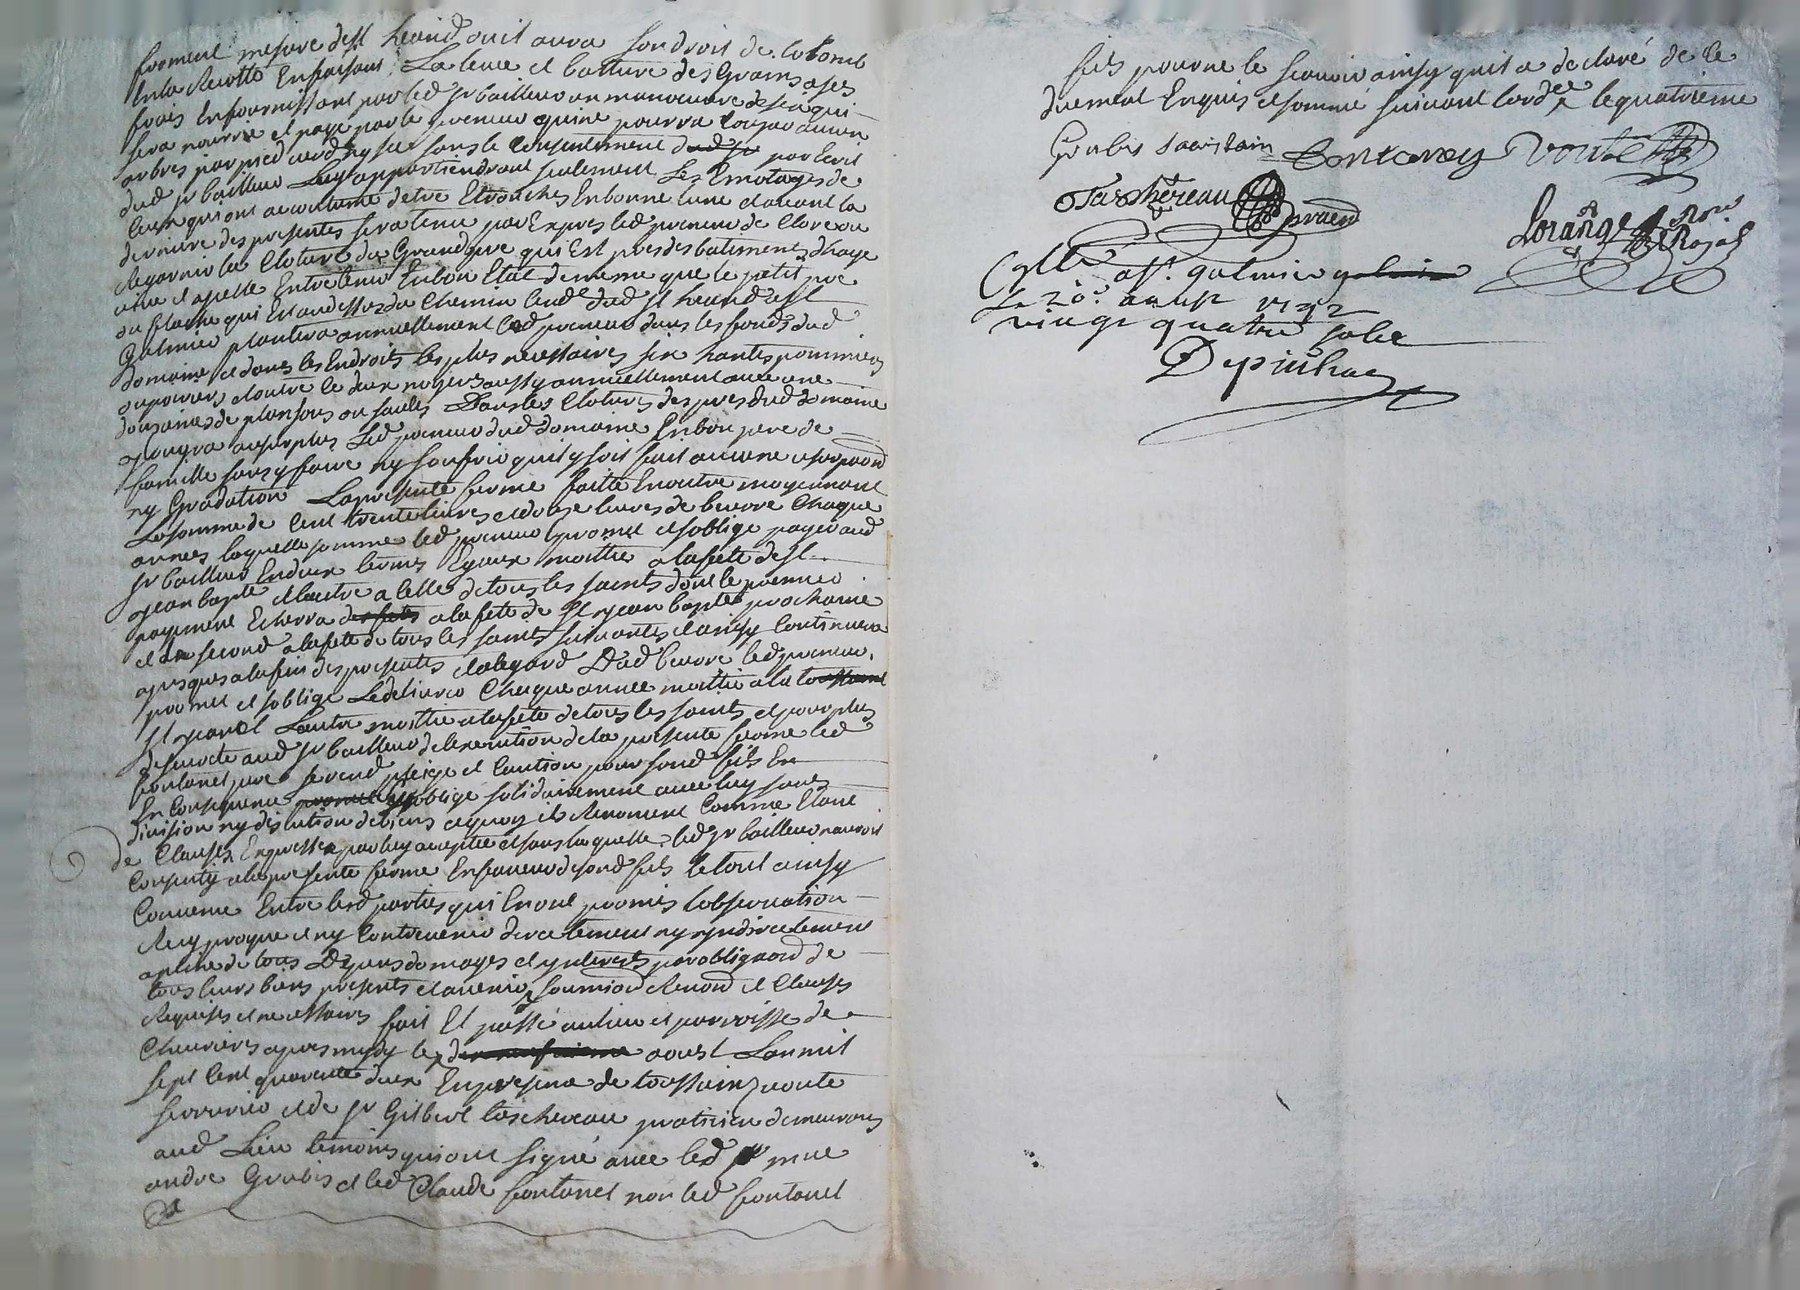 froment mesure de St heand ou il aura son droit de
In la Recolte En faisant La leuee et batture des Grains a ses
frais En fournissant par led sr bailleur un manoeuvre de scie qui
sera nourrie et payé par le preneur qui ne pourra Couper aucun
arbres par pied verd ny sec sans le Consentement dud sr par Ecrit
dud sr bailleur Luy appartiendront seulement Les Emotages de
Ceux qui ont accoutumé detre Ebranches En bonne lune et auant la
derniere des presentes sera tenu par Expres led preneur de Clore ou
Regarnir la Cloture du Grand pre qui Est pres des batiments d'haye
viue et apelle Entretenir En bon Etat de meme que le petit pre
ou flache qui Est au dessus du Chemin tend dud St heand a St
Galmier plantera annuellement led preneur dans les fonds dud
domaine et dans les Endroits les plus necessaires six hantes pommiers
ou poiriers et outre ce deux noyers aussy annuellement auec une
douzaines de plansons ou saules Dans les Clotures des pres dud domaine
Jouyra au surplus Led preneur dud domaine En bon pere de
famille sans y faire ny soufrir quil y soit fait aucune usurpaon
ny Gradation La presente ferme faitte En outre moyennant
La somme de Cent trente liures et douze liures de beurre Chaque
annees laquelle somme led preneur promet et soblige payer aud
sr bailleur En deux termes Egaux moittie a la fete de St
jean bapte et lautre a Celle de tous les saints dont le premier
payement Echerra des fetes a la fete de St jean bapte prochaine
et le second a la fete de tous les saints suiuantes et ainsy Continuera
jusques a la fin des presentes et a legard Dud beurre led preneur
promet et soblige Le deliurer Chaque annee moittie a la toussaint
St jean et Lautre moittie a la fete de tous les saints et pour plus
de surete aud sr bailleur de lexecution de la presente ferme led
fontanel pere se rend pleige et Caution pour sond fils En
En Consequence promet et soblige solidairement auec luy sans
diuision ny discution de biens a quoy ils Renoncent Comme Etant
de Clauses Expresses par luy acceptee et sans laquelle led sr bailleur nauroit
Consenty a la presente ferme En faueur de sond fils le tout ainsy
Conuenu Entre lesd parties qui En ont promis lobseruation
Reciproque et ny Contreuenir directement ny yndirectement
a peine de tous Depens domages et ynterests par obligaon de
tous leurs biens presents et auenir soumion Renonon et Clauses
Requises et necessaires fait Et passé au lieu et parroisse de
Cheurieres apres midy le aoust Lan mil
sept Cent quarente deux En presence de toussaint voute
serrurier et de sr Gilbert tachereau praticien demeurants
aud Lieu temoins qui ont signé auec led sr mre
andre Grubis et led Claude fontanel non led fontanel
fils pour ne le scauoir ainsy quil a declaré de ce
duement Enquis et sommé suiuant lordce le quatrieme
Grubis sacristain fontaney voute
Taschereau praend
Lorange Nore Royal
Collé a St galmier galmier
Le 20e aoust 1742
vingt quatre sols
Depinhac